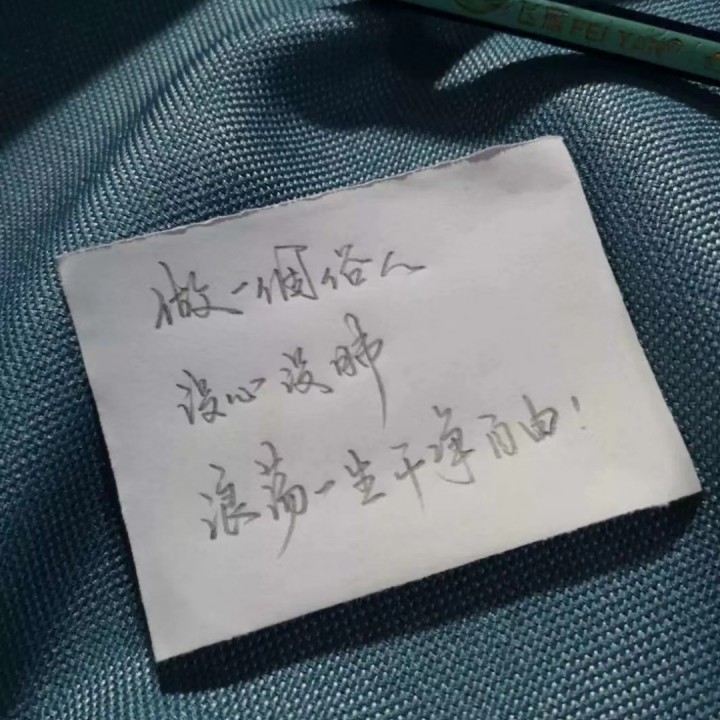 FEI YAN
做一個俗人
没心没肺
浪荡一生干净自由!